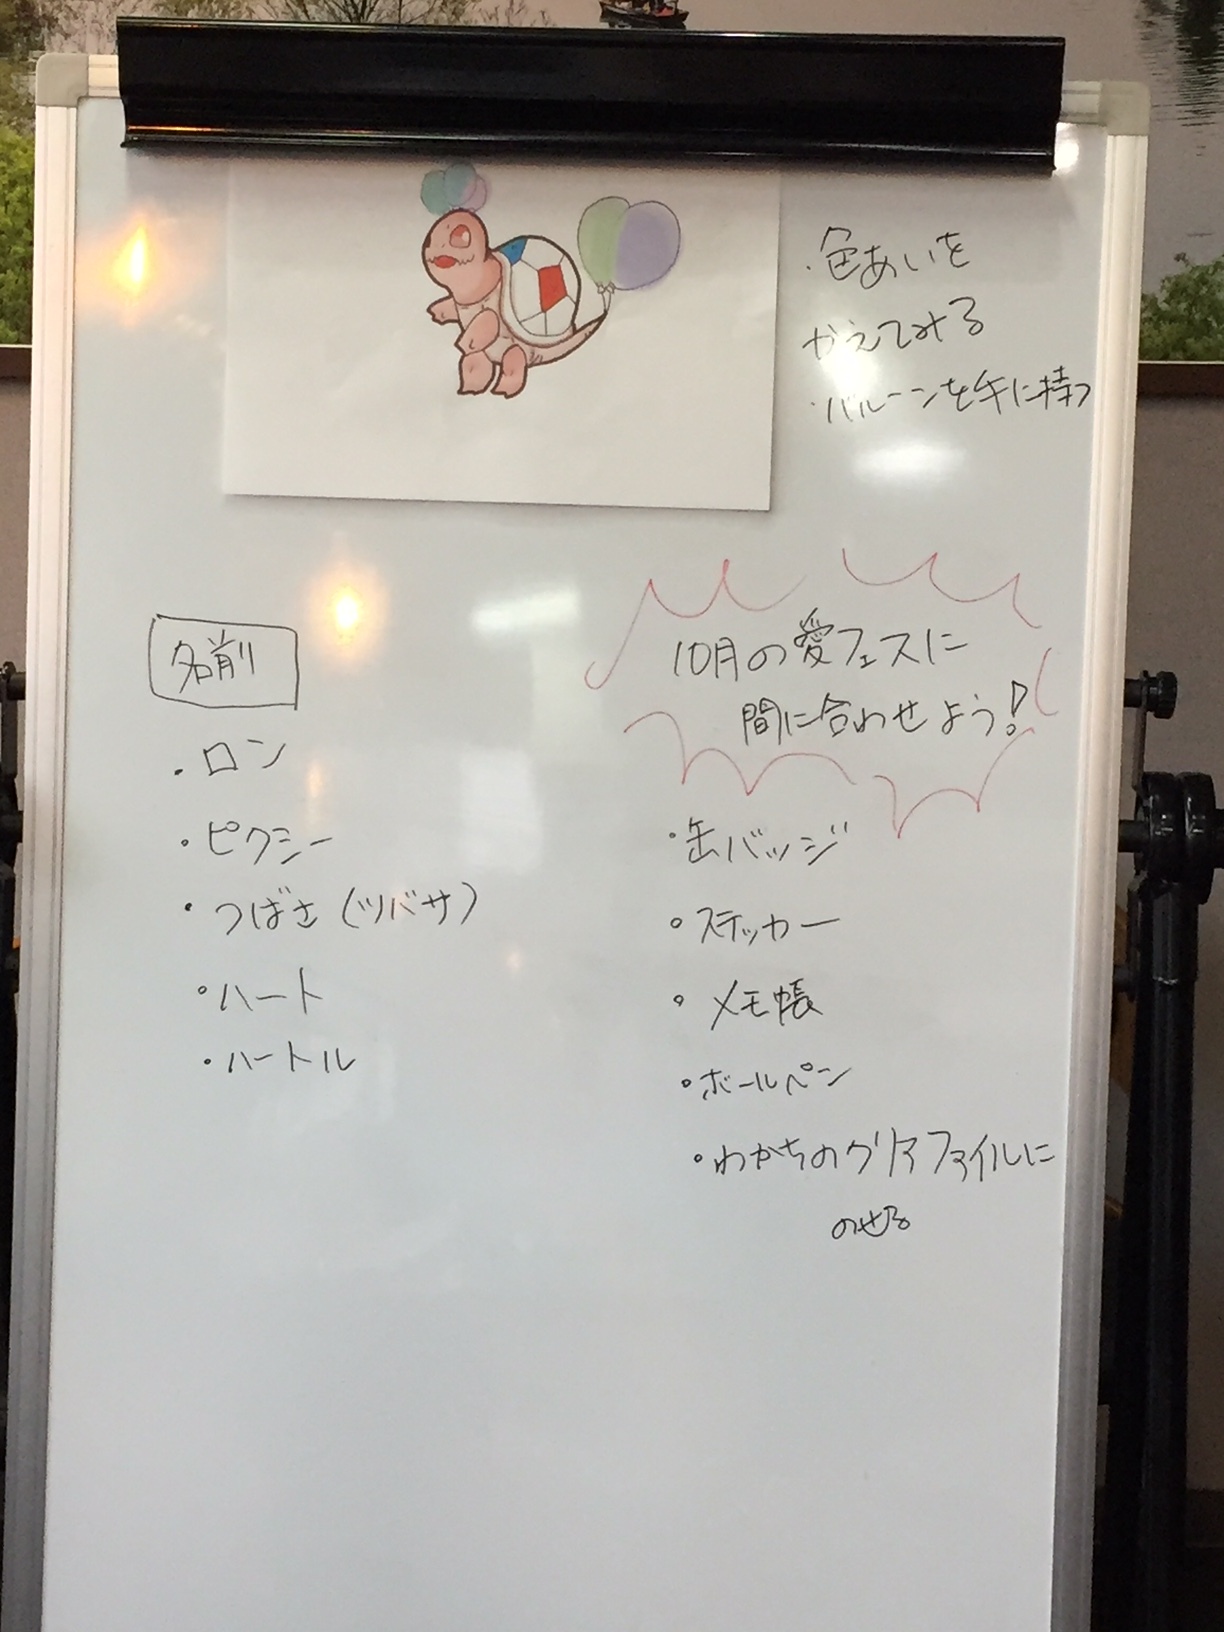 ・色あいを
かえてみる
・バルーンを手に持つ
名前
・ロン
・ピクシー
・つばさ(ツバサ)
・ハート
・ハートル
10月の愛フェスに
間に合わせよう!
・缶バッジ
・ステッカー
・メモ帳
・ボールペン
・わかちのクリアファイルに
のせる